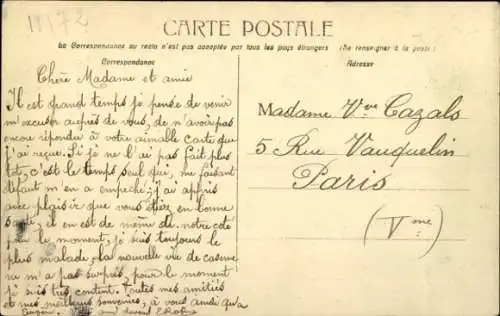 19172
CARTE POSTALE
La Correspondance au recto n'est pas acceptée par tous les pays étrangers (Se renseigner à la poste)
Correspondance
Adresse
Chère Madame et amie
Il est grand temps je pense de venir
m'excuser auprès de vous, de n'avoir pas
encore répondu à votre aimable carte que
j'ai reçue. Si je ne l'ai pas fait plus
tôt, c'est le temps seul qui, me faisant
défaut m'en a empeché; j'ai appris
avec plaisir que vous étiez en bonne
santé, il en est de même de notre coté
pour le moment, je suis toujours le
plus malade, la nouvelle vie de caserne
ne m'a pas surpris, pour le moment
je suis très content. Toutes mes amitiés
et mes meilleurs souvenirs, à vous ainsi qu'à
Madame Vve Cazals
5 Rue Vauquelin
Paris
(Vme)